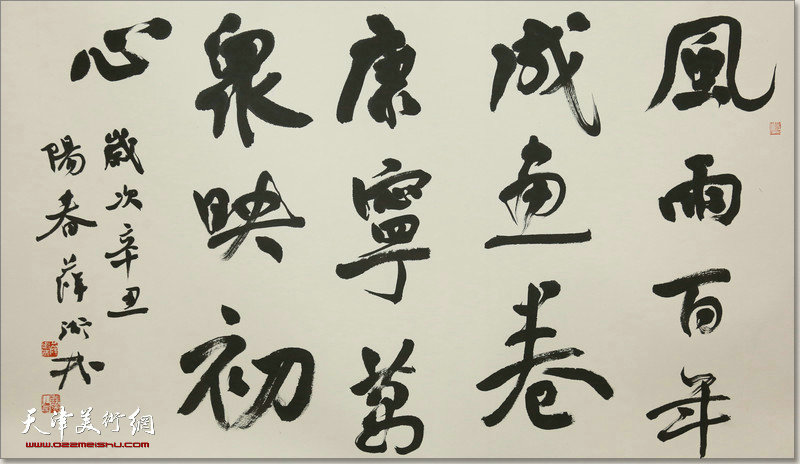 風雨百年
成畫卷
康寧萬
衆映初
心
歲次辛丑
陽春薛
天津美術網
www.022meishu.com